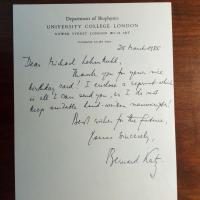 Department of Biophysics
UNIVERSITY COLLEGE LONDON
GOWER STREET LONDON WC1E 6BT
25 March 1985
Dear Michael
Thank you for your nice
birthday card! I enclose a reprint which
is all I can send you, as I do not
keep suitable hand-written manuscripts!
Best wishes for the future,
Yours sincerely,
Bernard Katz